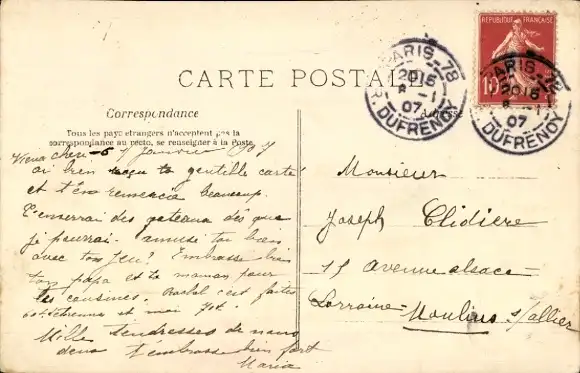 RÉPUBLIQUE FRANÇAISE
10
PARIS_78
2015
8 - 1
07
R. DUFRENOY
PARIS_78
2015
8 - 1
07
R. DUFRENOY
CARTE POSTALE
Correspondance
Adresse
Tous les pays étrangers n'acceptent pas la
correspondance au recto, se renseigner à la Poste
7 Janvier 1907
ai bien reçu ta gentille carte
et t'en remercia beaucoup.
T'enverrai des gateaux dès que
je pourrai. amuse toi bien
avec ton jeu? Embrasse bien
ton papa et ta maman pour
les cousines. Rachel c'est
et moi
Mille tendresses de nous
deux t'embrasse bien fort
Maria
Monsieur
Joseph Clidière
15 avenue alsace
Lorraine-
Moulins s/allier